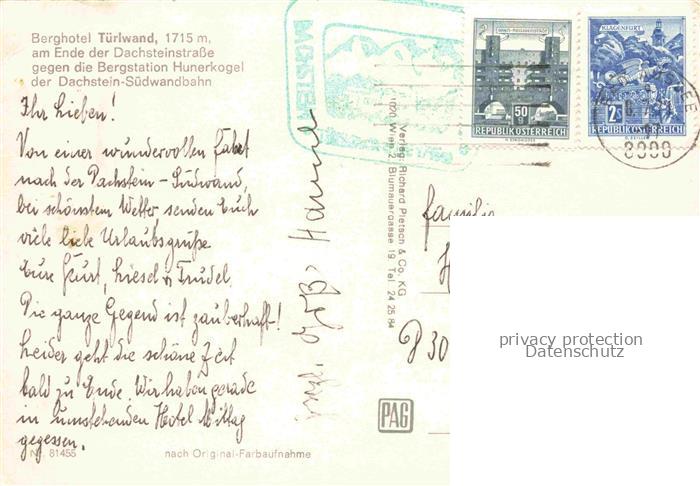 Berghotel Türlwand, 1715 m,
am Ende der Dachsteinstraße
gegen die Bergstation Hunerkogel
der Dachstein-Südwandbahn
Ihr Lieben!
Von einer wundervollen Fahrt
nach der Dachstein-Südwand,
bei schönstem Wetter senden Euch
viele liebe Urlaubsgrüße
Eure Geurt, Liesel + Trudel.
Die ganze Gegend ist zauberhaft!
Leider geht die schöne Zeit
bald zu Ende. Wir haben gerade
in umstehenden Hotel Mittag
gegessen.
Nr. 81455
nach Original-Farbaufnahme
Verlag: Richard Pietsch & Co. KG
1020 Wien 2, Blumauergasse 19, Tel. 24 25 84
PAG
50 g
REPUBLIK ÖSTERREICH
KLAGENFURT
2 S
REPUBLIK ÖSTERREICH
Familie
H
D 30
privacy protection
Datenschutz